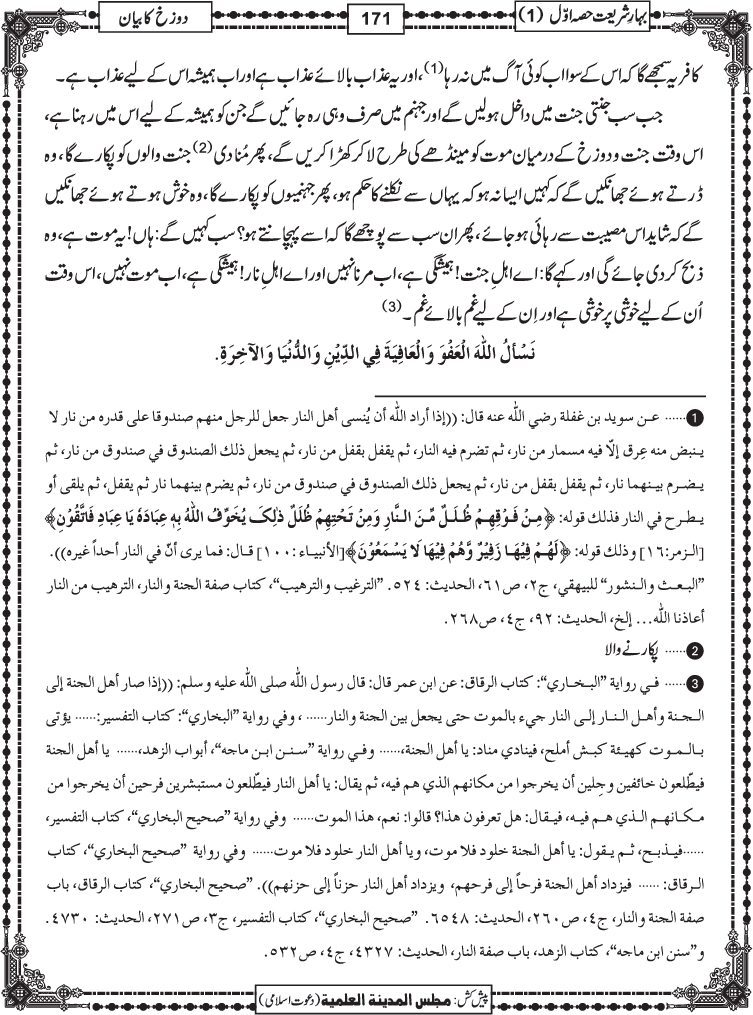 بہارِ شریعت حصہ اوّل (1)
171
دوزخ کا بیان
کافر یہ سمجھے گا کہ اس کے سوا اب کوئی آگ میں نہ رہا(1)، اور یہ عذاب بالائے عذاب ہے اور اب ہمیشہ اس کے لیے عذاب ہے۔
جب سب جنتی جنت میں داخل ہولیں گے اور جہنم میں صرف وہی رہ جائیں گے جن کو ہمیشہ کے لیے اس میں رہنا ہے،
اس وقت جنت و دوزخ کے درمیان موت کو مینڈھے کی طرح لا کر کھڑا کریں گے، پھر مُنادی(2) جنت والوں کو پکارے گا، وہ
ڈرتے ہوئے جھانکیں گے کہ کہیں ایسا نہ ہو کہ یہاں سے نکلنے کا حکم ہو، پھر جہنمیوں کو پکارے گا، وہ خوش ہوتے ہوئے جھانکیں
گے کہ شاید اس مصیبت سے رہائی ہو جائے، پھر ان سب سے پوچھے گا کہ اسے پہچانتے ہو؟ سب کہیں گے: ہاں! یہ موت ہے، وہ
ذبح کر دی جائے گی اور کہے گا: اے اہلِ جنت! ہمیشگی ہے، اب مرنا نہیں اور اے اہلِ نار! ہمیشگی ہے، اب موت نہیں، اس وقت
اُن کے لیے خوشی پر خوشی ہے اور اِن کے لیے غم بالائے غم۔(3)
نَسْأَلُ اللّٰهَ الْعَفْوَ وَالْعَافِيَةَ فِي الدِّيْنِ وَالدُّنْيَا وَالْآخِرَةِ.
1...... عـن سويد بن غفلة رضي اللّٰه عنه قال: ((إذا أراد اللّٰه أن يُنسى أهل النار جعل للرجل منهم صندوقا على قدره من نار لا
يـنبض منه عِرق إلّا فيه مسمار من نار، ثم تضرم فيه النار، ثم يقفل بقفل من نار، ثم يجعل ذلك الصندوق في صندوق من نار، ثم
يـضـرم بـيـنهما نار، ثم يقفل بقفل من نار، ثم يجعل ذلك الصندوق في صندوق من نار، ثم يضرم بينهما نار ثم يقفل، ثم يلقى أو
يـطـرح في النار فذلك قوله: ﴿مِـنْ فَـوْقِهِـمْ ظُـلَـلٌ مِّـنَ الـنَّـارِ وَمِنْ تَحْتِهِمْ ظُلَلٌ ذٰلِکَ يُخَوِّفُ اللّٰهُ بِهٖ عِبَادَهٗ يَا عِبَادِ فَاتَّقُوْنِ﴾
[الزمر: ١٦] وذلك قوله: ﴿لَهُـمْ فِيْهَـا زَفِيْرٌ وَّهُـمْ فِيْهَا لَا يَسْمَعُوْنَ﴾[الأنبياء: ١٠٠] قـال: فما يرى أنّ في النار أحداً غيره)).
”البـعـث والنشور“ للبيهقي، ج٢، ص٦١، الحديث: ٥٢٤. ”الترغيب والترهيب“، كتاب صفة الجنة والنار، الترهيب من النار
أعاذنا اللّٰه... إلخ، الحديث: ٩٢، ج٤، ص٢٦٨.
2...... پکارنے والا
3...... فـي رواية ”البـخـاري“: كتاب الرقاق: عن ابن عمر قال: قال رسول اللّٰه صلى اللّٰه عليه وسلم: ((إذا صار أهل الجنة إلى
الـجـنة وأهـل الـنـار إلـى النار جيء بالموت حتى يجعل بين الجنة والنار...... ، وفي رواية ”البخاري“: كتاب التفسير:...... يؤتى
بـالـمـوت كهيئـة كبـش أملح، فينادي مناد: يا أهل الجنة،...... وفـي رواية ”سـنـن ابـن ماجه“، أبواب الزهد،...... يا أهل الجنة
فيطّلعون خائفين وجِلين أن يخرجوا من مكانهم الذي هم فيه، ثم يقال: يا أهل النار فيطّلعون مستبشرين فرحين أن يخرجوا من
مـكـانـهـم الـذي هـم فيـه، فيـقـال: هل تعرفون هذا؟ قالوا: نعم، هذا الموت...... وفي رواية ”صحيح البخاري“، كتاب التفسير،
......فيـذبـح، ثـم يـقـول: يا أهل الجنة خلود فلا موت، ويا أهل النار خلود فلا موت...... وفي رواية ”صحيح البخاري“، كتاب
الـرقاق: ...... فيزداد أهل الجنة فرحاً إلى فرحهم، ويزداد أهل النار حزناً إلى حزنهم)). ”صحيح البخاري“، كتاب الرقاق، باب
صفة الجنة والنار، ج٤، ص٢٦٠، الحديث: ٦٥٤٨. ”صحيح البخاري“، كتاب التفسير، ج٣، ص٢٧١، الحديث: ٤٧٣٠.
و”سنن ابن ماجه“، كتاب الزهد، باب صفة النار، الحديث: ٤٣٢٧، ج٤، ص٥٣٢.
پیش کش: مجلس المدینة العلمیة (دعوتِ اسلامی)